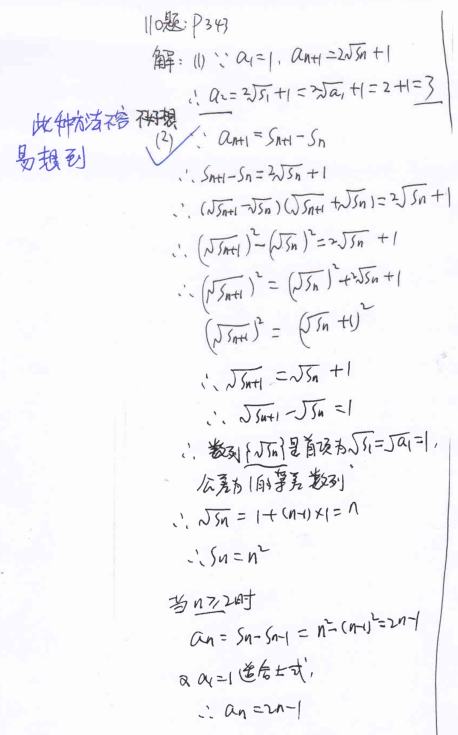 110题:P343
解:(1) ∵ a₁=1, aₙ₊₁=2√Sₙ+1
∴ a₂=2√S₁+1=2√a₁+1=2+1=3
此种方法不容
易想到
不好想
(2) ∵ aₙ₊₁=Sₙ₊₁-Sₙ
∴ Sₙ₊₁-Sₙ=2√Sₙ+1
∴ (√Sₙ₊₁-√Sₙ)(√Sₙ₊₁+√Sₙ)=2√Sₙ+1
∴ (√Sₙ₊₁)²-(√Sₙ)²=2√Sₙ+1
∴ (√Sₙ₊₁)²=(√Sₙ)²+2√Sₙ+1
(√Sₙ₊₁)²=(√Sₙ+1)²
∴ √Sₙ₊₁=√Sₙ+1
∴ √Sₙ₊₁-√Sₙ=1
∴ 数列{√Sₙ}是首项为√S₁=√a₁=1,
公差为1的等差数列
∴ √Sₙ=1+(n-1)×1=n
∴ Sₙ=n²
当n≥2时
aₙ=Sₙ-Sₙ₋₁=n²-(n-1)²=2n-1
又a₁=1适合上式,
∴ aₙ=2n-1